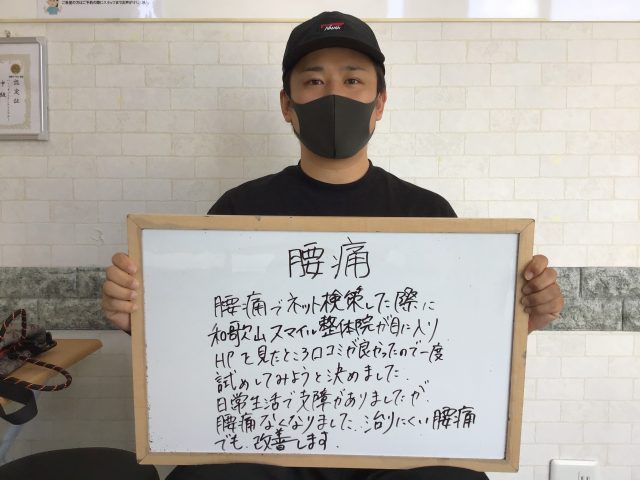 認定証
腰痛
腰痛でネット検策した際に
和歌山スマイル整体院が目に入り
HPを見たところ口コミが良かったので一度
試めしてみようと決めました.
日常生活で支障がありましたが
腰痛なくなりました.治りにくい腰痛
でも改善します.